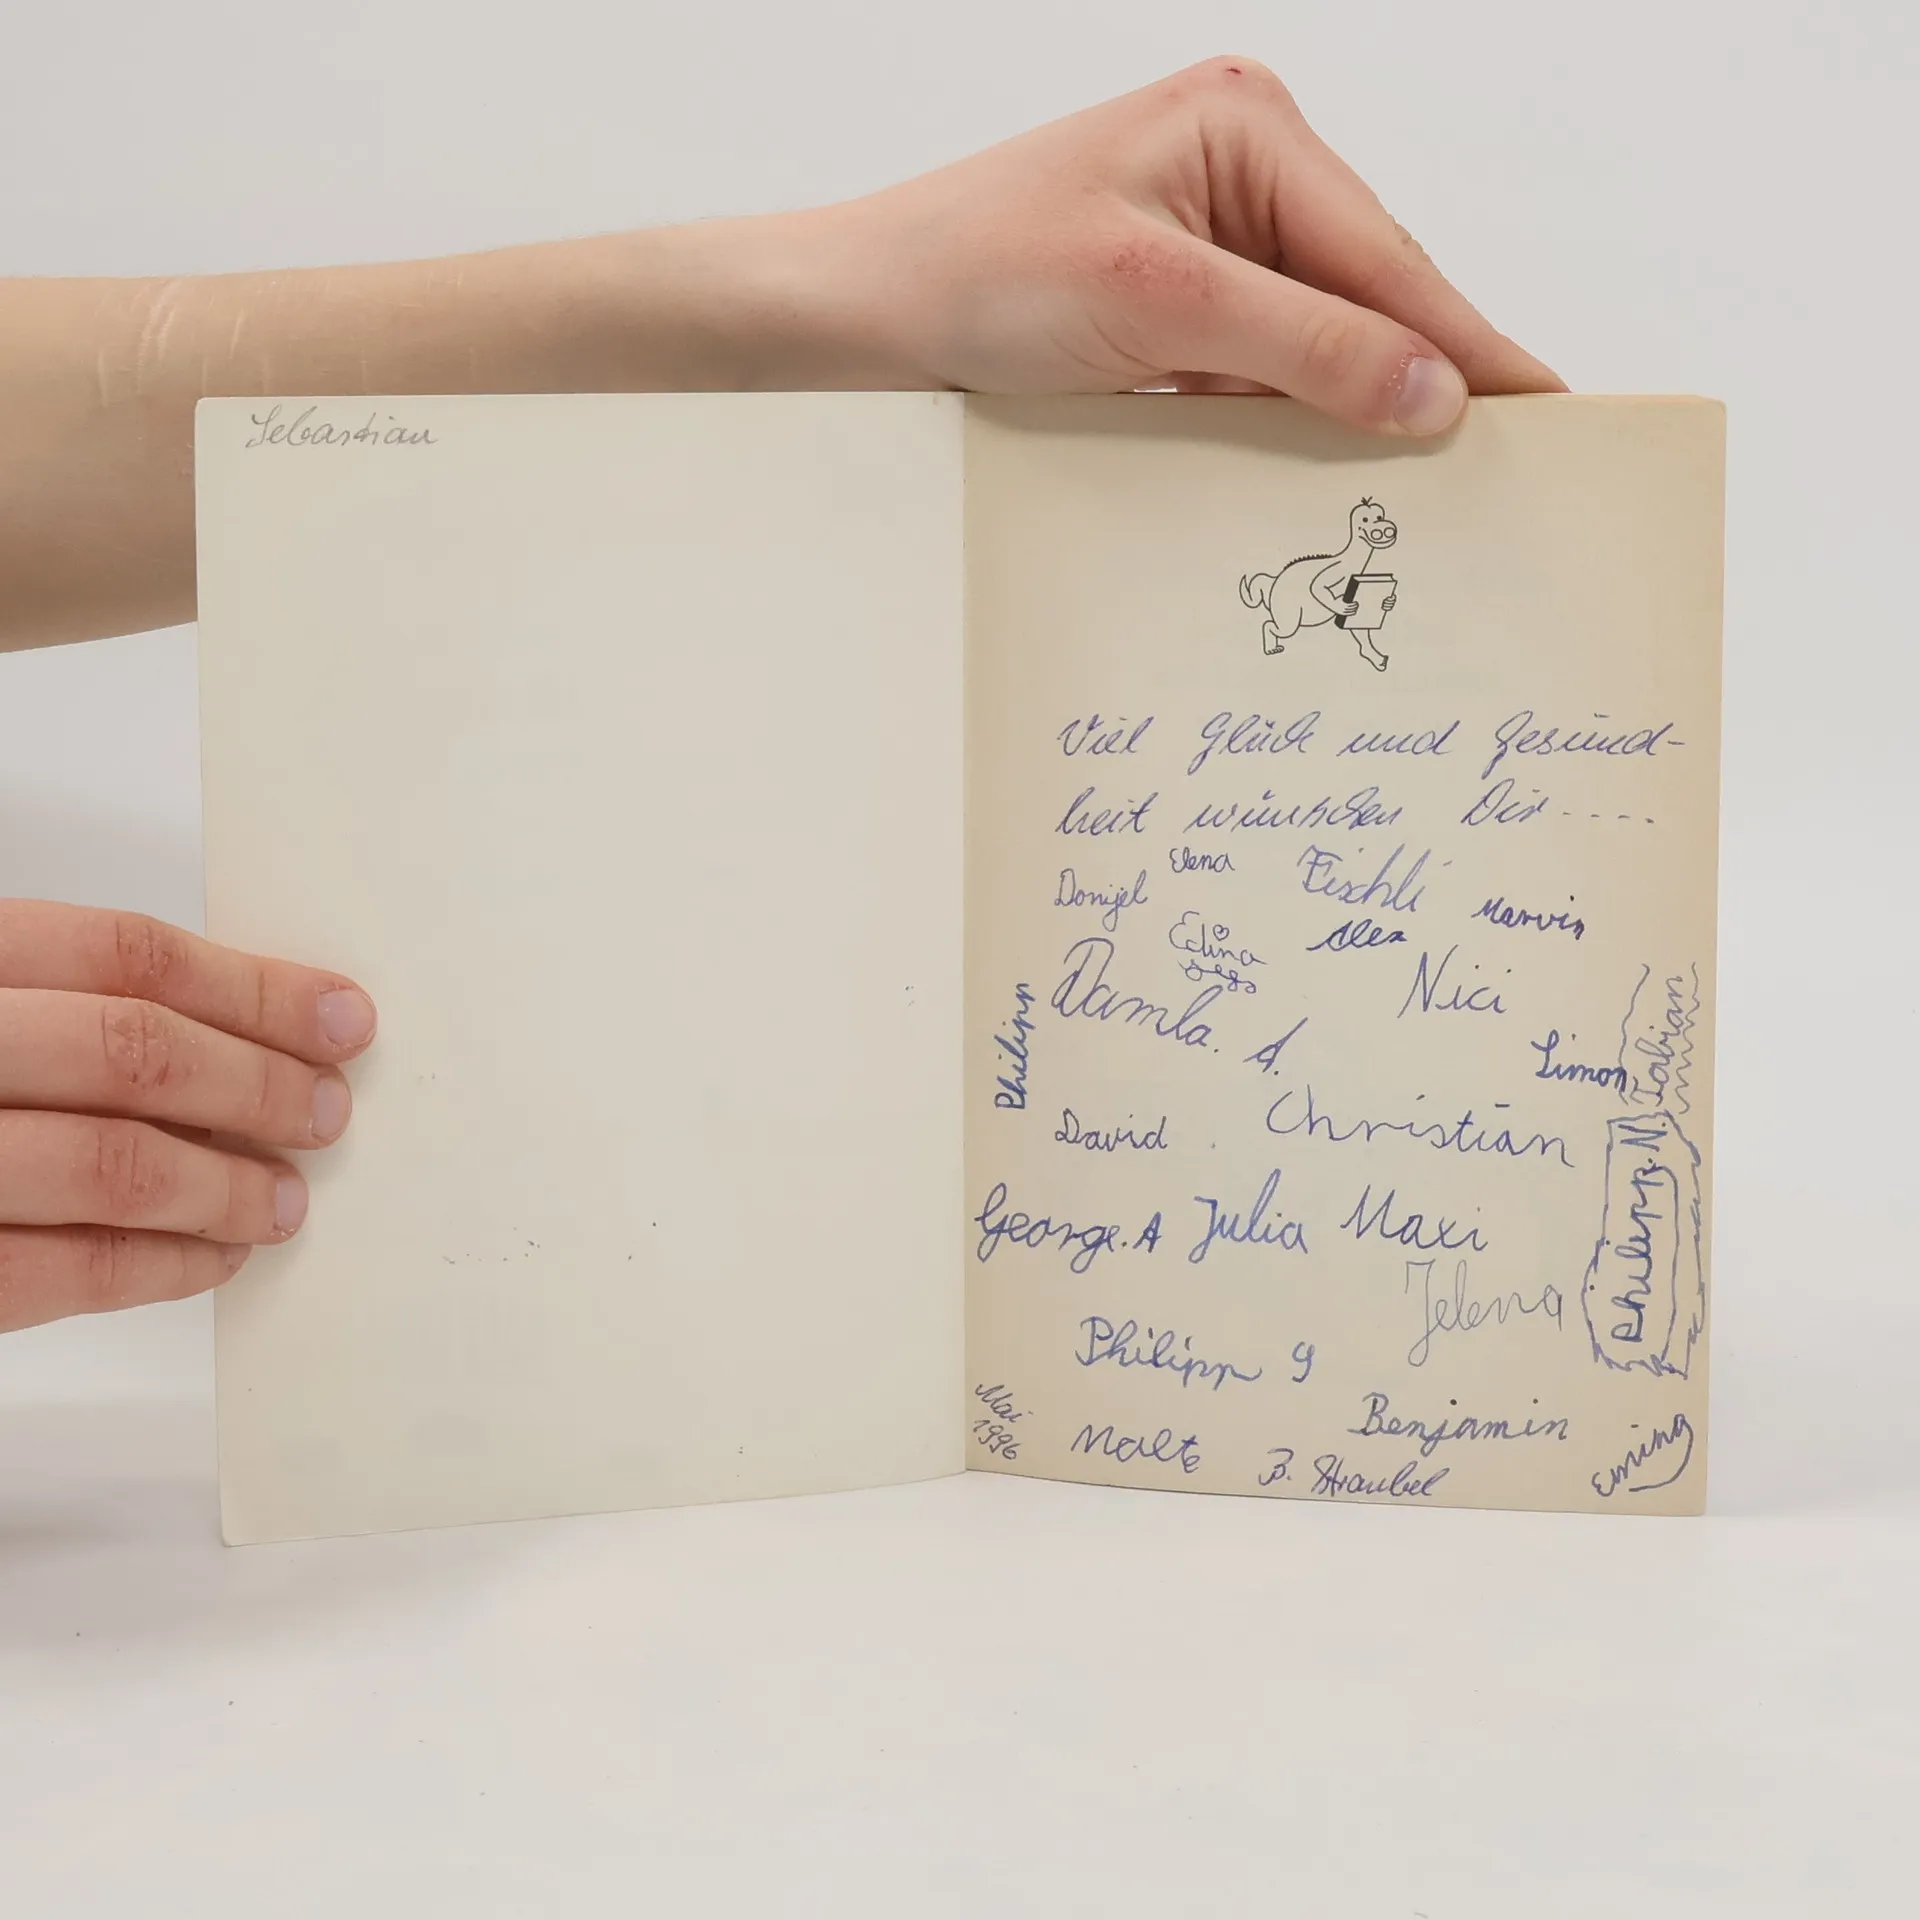 Sebastian
Viel Glück und Gesund-
heit wünschen Dir ----
Elena
Donijel
Fischli
Marvin
Edina
Alex
Damla. A.
Nici
Philipp
Simon
Fabian
David
Christian
Philipp.N.
George.A Julia Maxi
Jelena
Philipp S
Mai
1996
Malte
Benjamin
B. Straubel